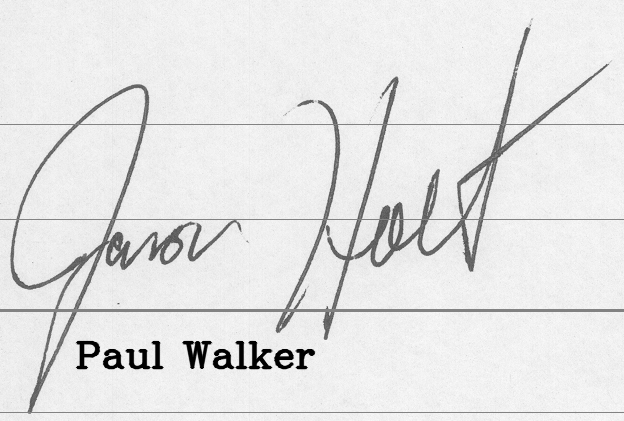 Jason Holt
Paul Walker